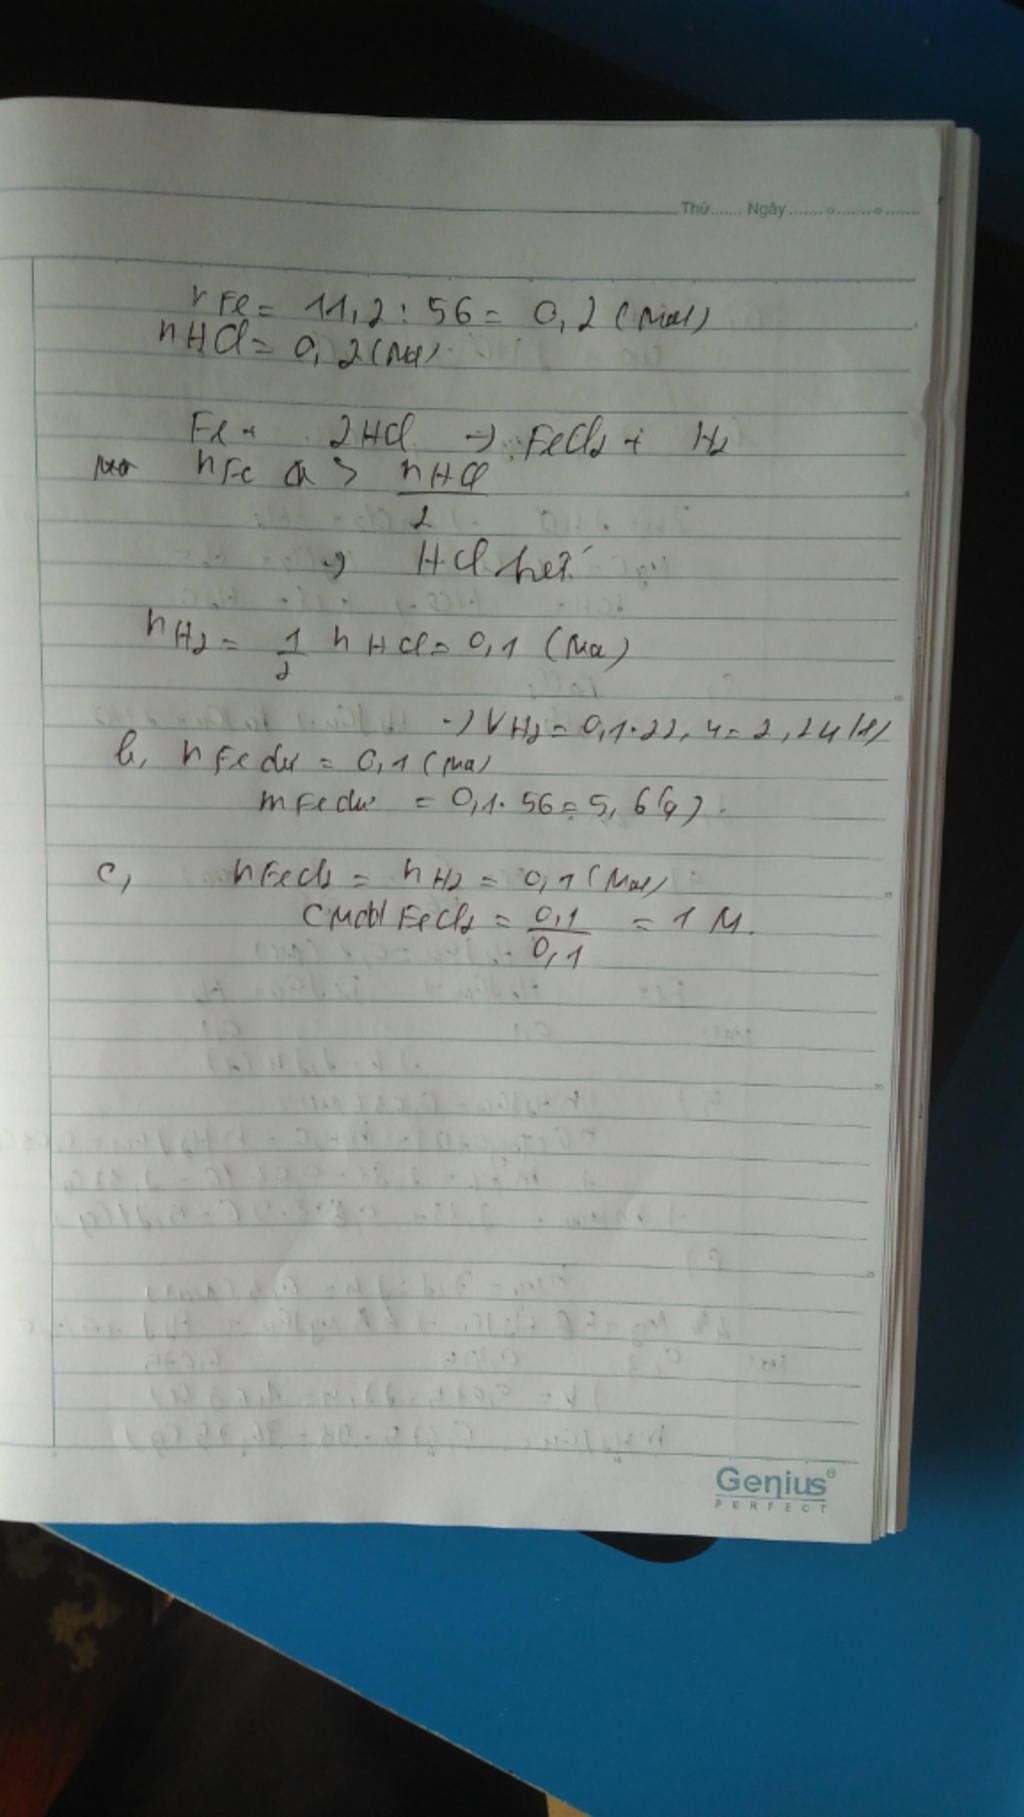 Thứ....... Ngày.......o.......o.......
nFe = 11,2 : 56 = 0,2 (mol)
nHCl = 0,2 (mol)
Fe + 2HCl → FeCl2 + H2
nFe > nHCl
2
→ HCl hết
nH2 = 1/2 nHCl = 0,1 (mol)
→ VH2 = 0,1 . 22,4 = 2,24 (l)
b, nFe dư = 0,1 (mol)
mFe dư = 0,1 . 56 = 5,6 (g)
c, nFeCl2 = nH2 = 0,1 (mol)
FeCl2 = 0,1 = 1 M.
0,1
Genius®
PERFECT